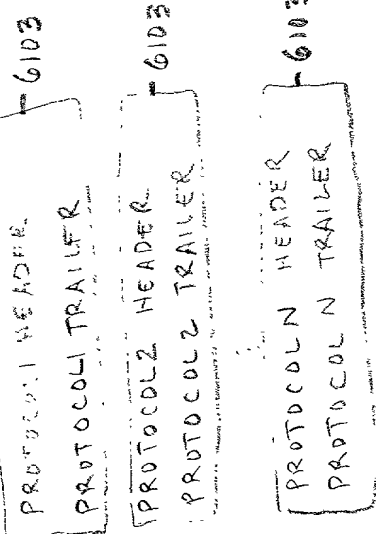 PROTOCOL1 HEADER
PROTOCOL1 TRAILER
6103
PROTOCOL2 HEADER
PROTOCOL2 TRAILER
6103
PROTOCOLN HEADER
PROTOCOL N TRAILER
6103